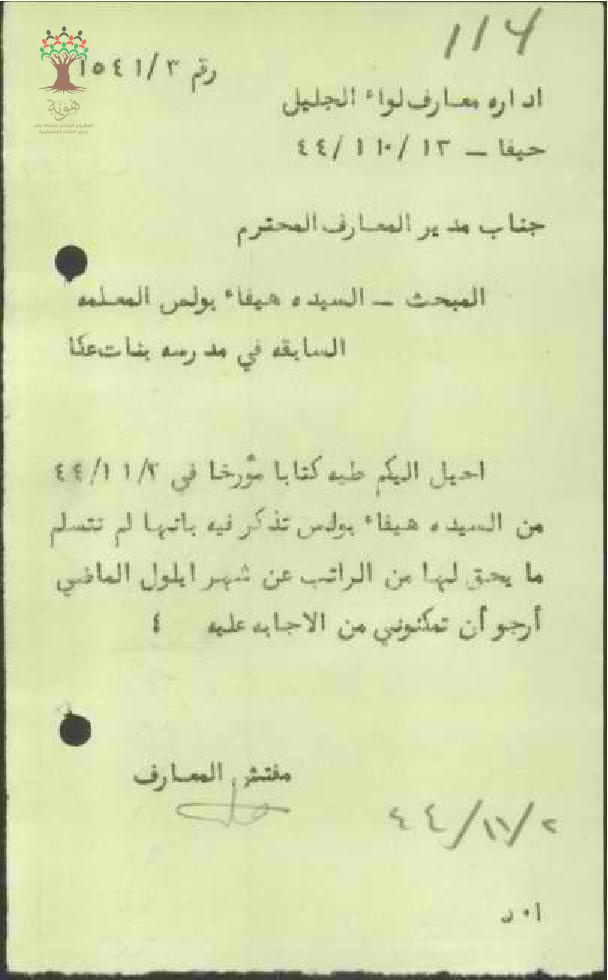 114
رقم ١٥٤١/٣
هوية
اداره معارف لواء الجليل
حيفا – ١٣/١٠/٤٤
جناب مدير المعارف المحترم
المبحث – السيده هيفاء بولس المعلمه
السابقه في مدرسه بنات عكا
احيل اليكم طيه كتابا مؤرخا في ٤٤/١١/٢
من السيده هيفاء بولس تذكر فيه بانها لم تتسلم
ما يحق لها من الراتب عن شهر ايلول الماضي
أرجو أن تمكنوني من الاجابه عليه ٤
مفتش المعارف
٤٤/١١/٢
ا٠د